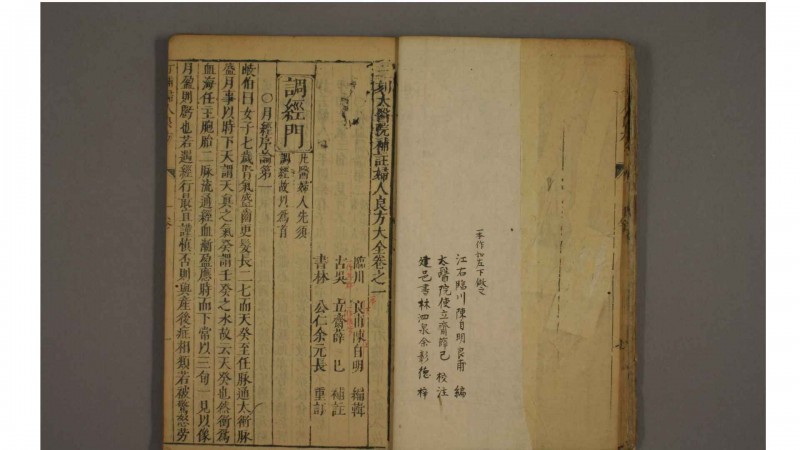 一本作如左下做之
江右臨川陳自明良甫 編
太醫院使立齋薛己 校注
建邑書林泗泉余彰德 梓
太醫院補註婦人良方大全卷之一
臨川 良甫陳自明 編輯
古吳 立齋薛己 補註
書林 公仁余元長 重訂
調經門
凡醫婦人先須
調經故以為首
○月經序論第一
岐伯曰女子七歲腎氣盛齒更髮長二七而天癸至任脉通太衝脉
盛月事以時下天謂天真之氣癸謂壬癸之水故云天癸也然衝為
血海任主胞胎二脉流通經血漸盈應時而下常以三旬一見以像
月盈則虧也若遇經行最宜謹慎否則與產後症相類若被驚怒勞